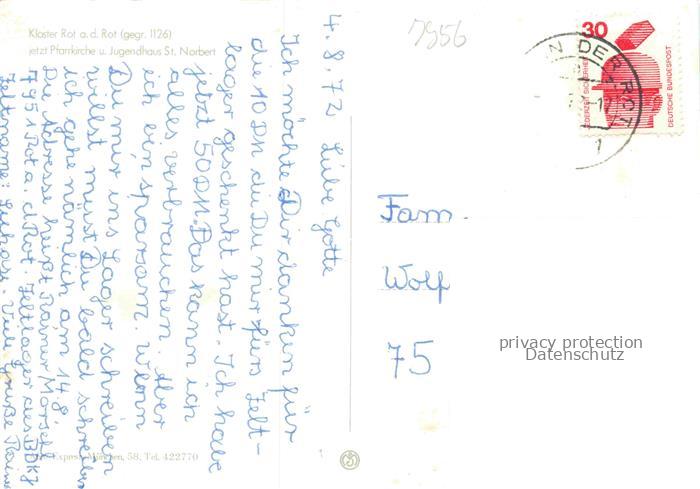 Kloster Rot a. d. Rot (gegr. 1126)
jetzt Pfarrkirche u. Jugendhaus St. Norbert
7956
4.8.72 Liebe Gotte
Ich möchte Dir danken für
die 10 DM du Du mir fürs Zelt-
lager geschenkt hast. Ich habe
jetzt 50 DM. Das kann ich
alles verbrauchen. Aber
ich bin sparsam. Wenn
Du mir ins Lager schreiben
willst müsst Du bald schreiben
ich gehe nämlich am 14.8.
Die Adresse heißt Rainer
7951 Rot a. d. Rot. Zeltlager des BDKJ
Zeltname: Viele Grüße Rainer
Express, München, 58, Tel. 422770
30
JEDERZEIT SICHERHEIT
DEUTSCHE BUNDESPOST
N DER ROT
1
Fam.
Wolf
75
privacy protection
Datenschutz